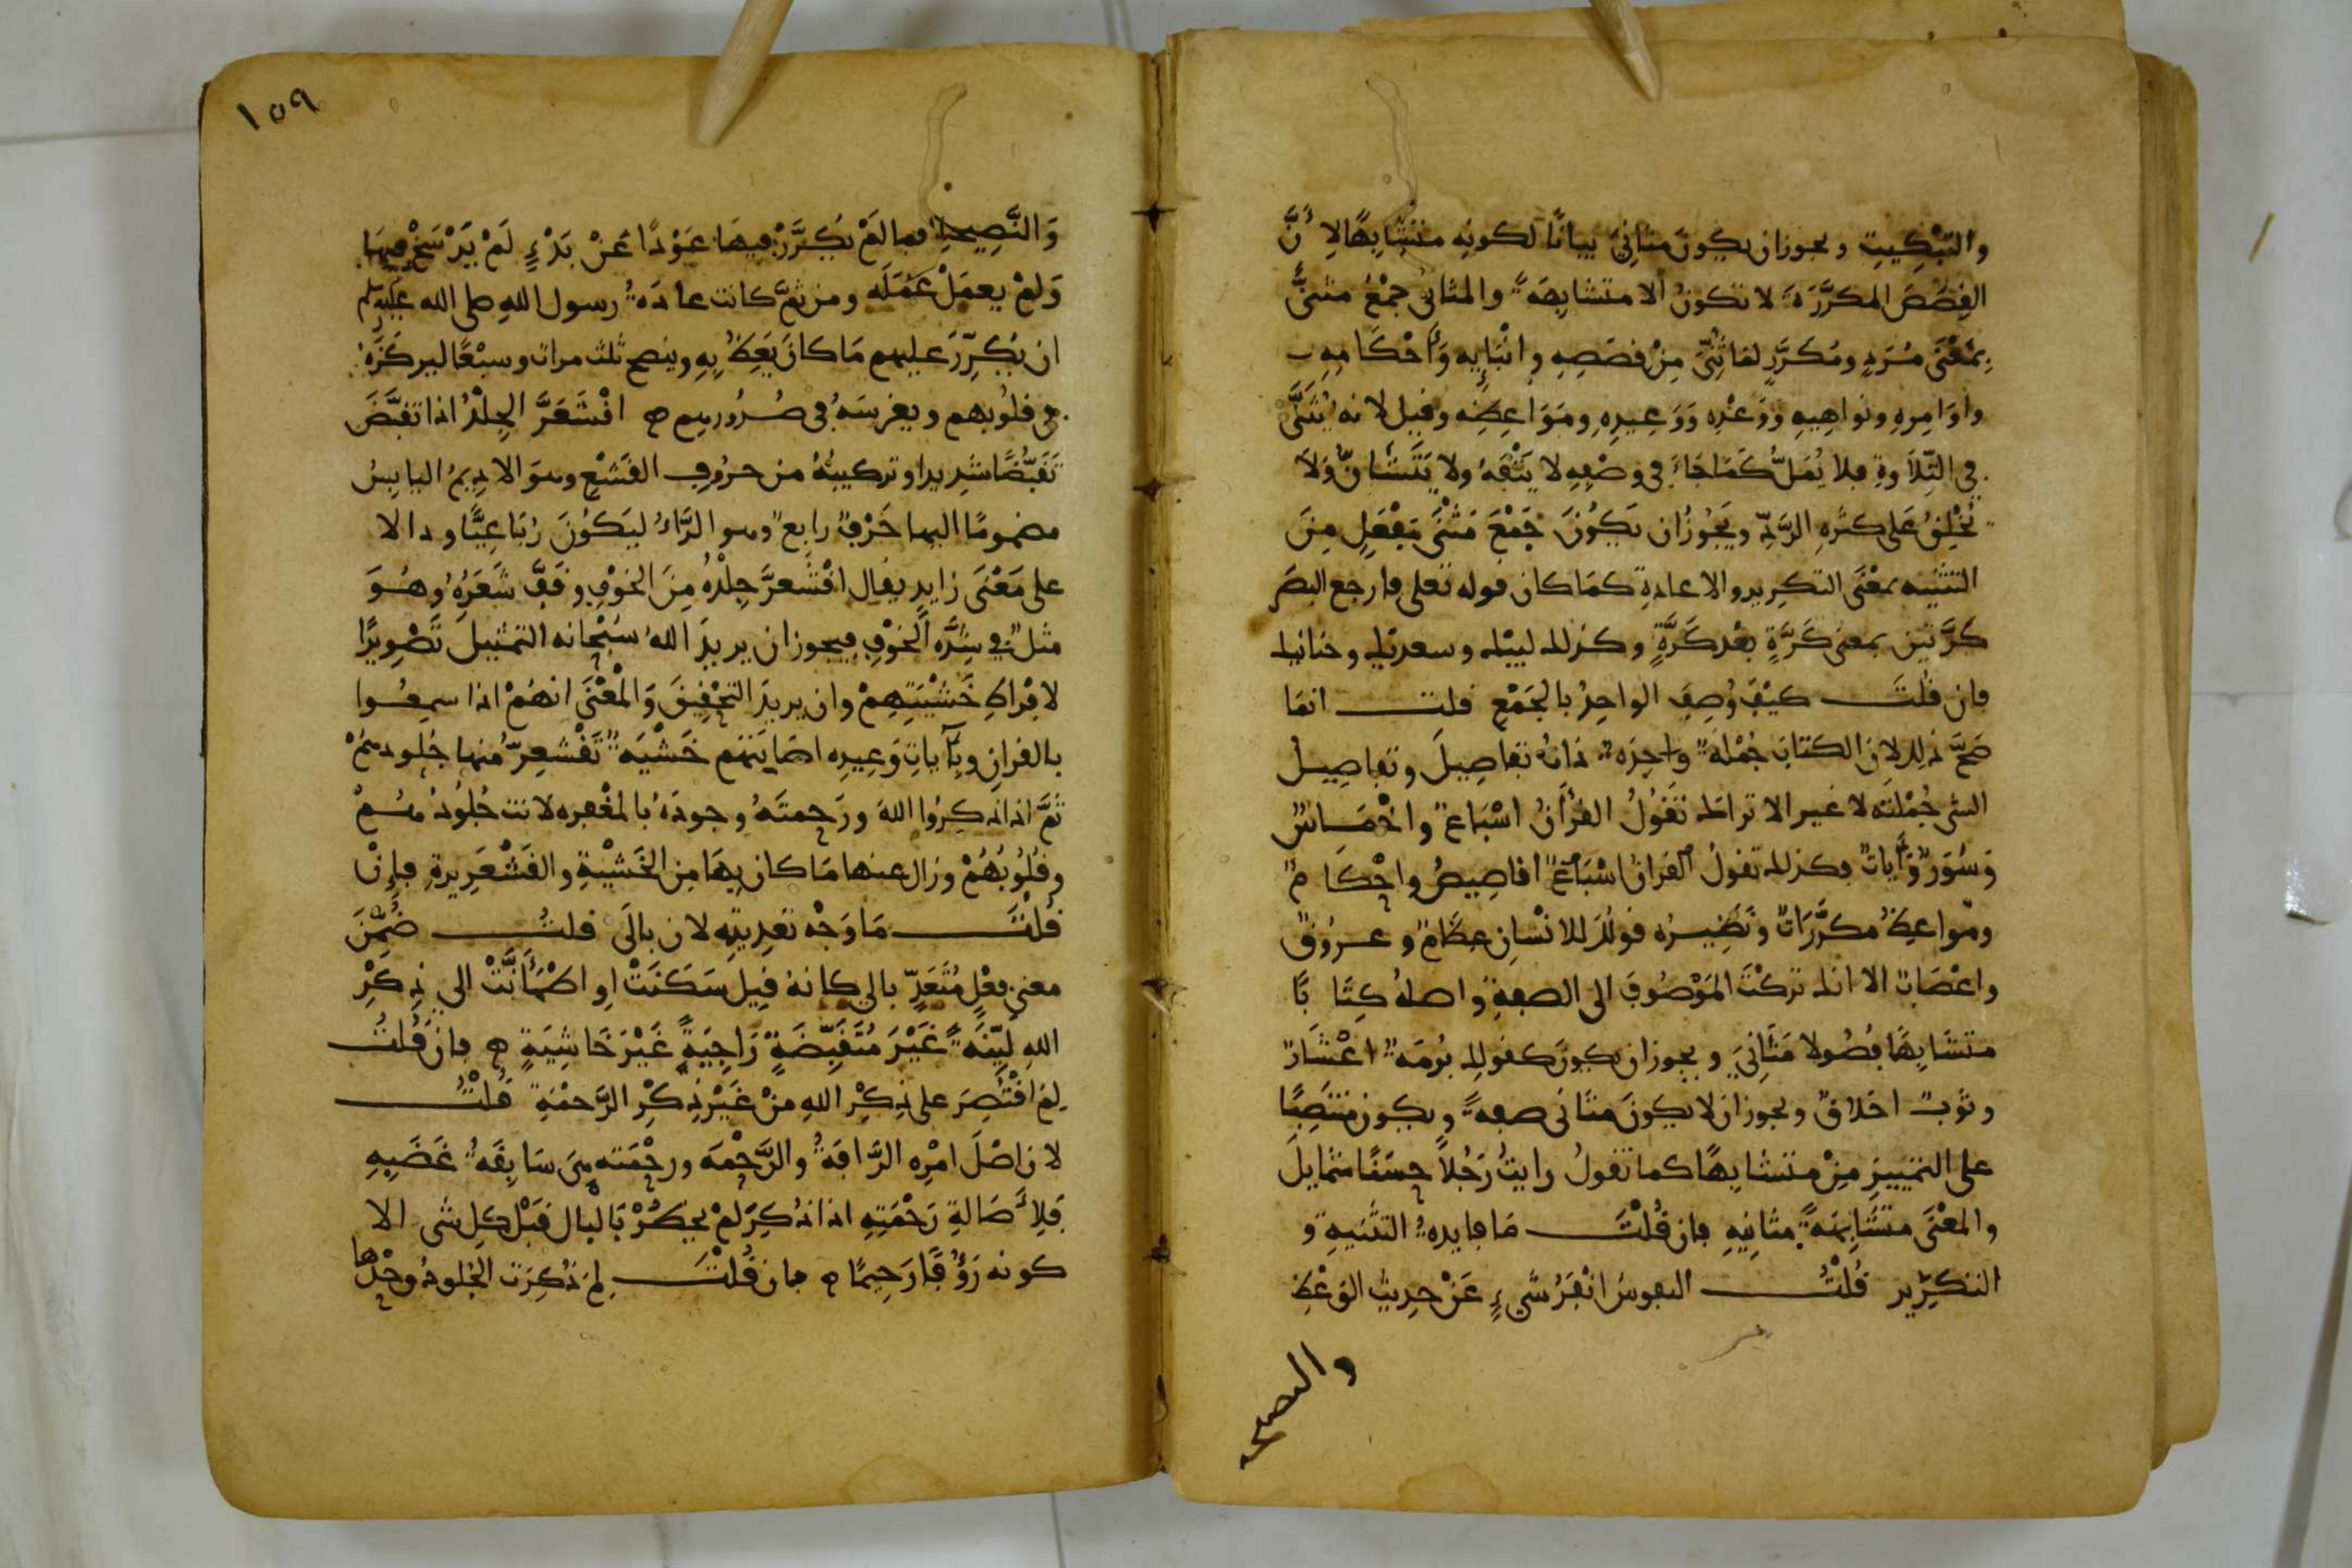 والتبْكِيتِ ويجوز ان يكونَ مثانِيَ بيانًا لكونِه متشابِهًا لِأنَّ
القِصَصَ المكرَّرَةَ لا تكونُ الا متشابِهَةً والمثاني جمْعُ مثنًى
بِمَعْنَى مُرَدٍ ومُكَرَّرٍ لما ثُنِّىَ مِنْ قصَصِهِ وانْبَايِه وَأحْكَامِهِ
واوَامِرِهِ ونواهِيهِ ووَعْدِه وَوَعِيدِهِ ومَوَاعِظِه وقيل لانه يُثَنَّى
في التِّلاوةِ فلا يُمَلُّ كَمَا جَاءَ في وصْفِهِ لا يَتْفَهُ ولا يَتَشَانُّ وَلَا
يُخْلِقُ عَلى كثرهِ الرَّدِّ ويَجُوزُ ان يَكُونَ جَمْعَ مَثْنَى مَفْعَلٍ مِنَ
التثنِيَه بمعْنَى التكرِير والاعادةِ كمَا كان قوله تعلى فارجع البصَر
كرَّتيْن بمعنى كَرَّةٍ بعْد كَرَّةٍ وكذلك لبيْك وسعديْك وحنانيك
فان قُلتَ كيْفَ وُصِفَ الواحِدُ بالجَمْعِ قلت انمَا
صَحَّ ذلِك لِانّ الكتابَ جُمْلةٌ واحِدَةٌ ذاتُ تفاصِيلَ وتفاصِيلُ
الشي جُمْلتُه لا غير الا تراك تَقُولُ القرْأنُ اسْبَاعٌ واخْمَاسٌ
وَسُوَرٌ وَأياتٌ فكذلك تقولُ القرانُ اسْبَاعٌ اقاصِيصُ واحْكَامٌ
ومَواعِظُ مكرَّرَاتٌ ونَظِيرُه قولُكَ للانْسانِ عظَامٌ وعروُقٌ
واعْصَابٌ الا انك تركْتَ المَوْصُوفَ الى الصفةِ واصلهُ كِتَابًا
متشَابِهًا فصُولا مَثَانِيَ ويجوز ان يكونَ كقولِك بُرمَةٌ اعْشَارٌ
وثوبٌ اخلاقٌ ويجوز ان لا يكونَ مثانى صفهً ويكون منتَصِبًا
على التمييزِ مِنْ متشابِهًا كما تقولُ رايتُ رَجُلًا حسَنًا شمايلَ
والمعْنَى متشَابِهَةً مثانِيهِ فان قُلْتَ مَا فايدهُ التثنيهِ و
التكرِّير قُلْتُ النفوسُ انْفَرُ شَيءٍ عَنْ حديثِ الوَعْظِ
والنصيحه
١٥٩
وَالنَّصِيحَةِ فما لَمْ يُكَرَّرْ فيهَا عَوْدًا عَنْ بَدْءٍ لَمْ يَرْسَخْ فيهَا
وَلمْ يعمَلْ عَمَلَه ومن ثمَّ كانت عادَهُ رسول اللهِ صلى الله عليه وسلم
ان يُكرِّرَ عليهم مَا كانَ يَعِظُ بِهِ وينصح ثلث مراتٍ وسبْعًا ليركزَهُ
في قلُوبهم ويغرسَهُ في صُدُورهم اقْشَعَرَّ الجِلْدُ اذا تقبَّضَ
تَقَبُّضًا شدِيدا وتركيبُهُ من حرُوفِ القَشْعِ وهوَ الادِيمُ اليابِسُ
مضمومًا اليها حَرْفٌ رابعٌ وهو الرَّاءُ ليَكوُنَ رُبَاعِيًّا ودالا
على مَعْنَى زايدٍ يقال اقْشَعرَّ جِلْدُهُ مِنَ الخوْفِ وقَفَّ شَعَرُهُ وهُوَ
مثلٌ في شِدَّه الخوْفِ فيجوز ان يريدَ اللهُ سُبْحانه التمثيلَ تَصْوِيرًا
لافراطِ خَشْيَتِهِمْ وان يريدَ التحْقِيقَ وَالمْعْنَى انهُمْ اذا سمِعُوا
بالقرانِ وبِآياتِ وَعِيدِه اصَابَتهم خَشْيَهٌ تَقْشعِرُّ منها جُلودهُمْ
ثمَّ اذا ذكِرُوا اللهَ ورَحمتَهُ وجودَهُ بالمغْفره لانت جُلُودُهُمْ
وقُلُوبُهُمْ وزال عنها مَا كان بِهَا مِن الخَشْيَةِ والقَشْعَرِيرةِ فإِنْ
قُلْتَ مَا وَجْه تعدِيتِه لان بالَى قلتُ ضُمِّنَ
معنى فعْلٍ مُتَعَدٍّ بالي كانهُ قِيل سَكَنَتْ او اطْمَأنَّتْ الي ذِكْرِ
اللهِ لَيِّنَةً غَيْرَ مُتَقَبِّضَةٍ رَاجِيَةً غَيْرَ خَاشِيَةٍ فان قُلتَ
لِمَ اقْتُصِرَ على ذِكْرِ اللهِ مِنْ غَيْرِ ذِكْرِ الرَّحمْةِ قُلْتُ
لان اصْلَ امْرِه الرَّافةُ والرَّحْمَه ورحْمَته هىَ سَابِقَهٌ غَضَبِهِ
فَلِأَصَالةِ رَحْمَتِهِ اذا ذُكِرَ لمْ يخطُرْ بَالبال قبْل كل شى الا
كونه رَؤُفًا رَحِيمًا فان قُلْتَ لِمَ ذُكِرَت الجُلودُ وحْدَها